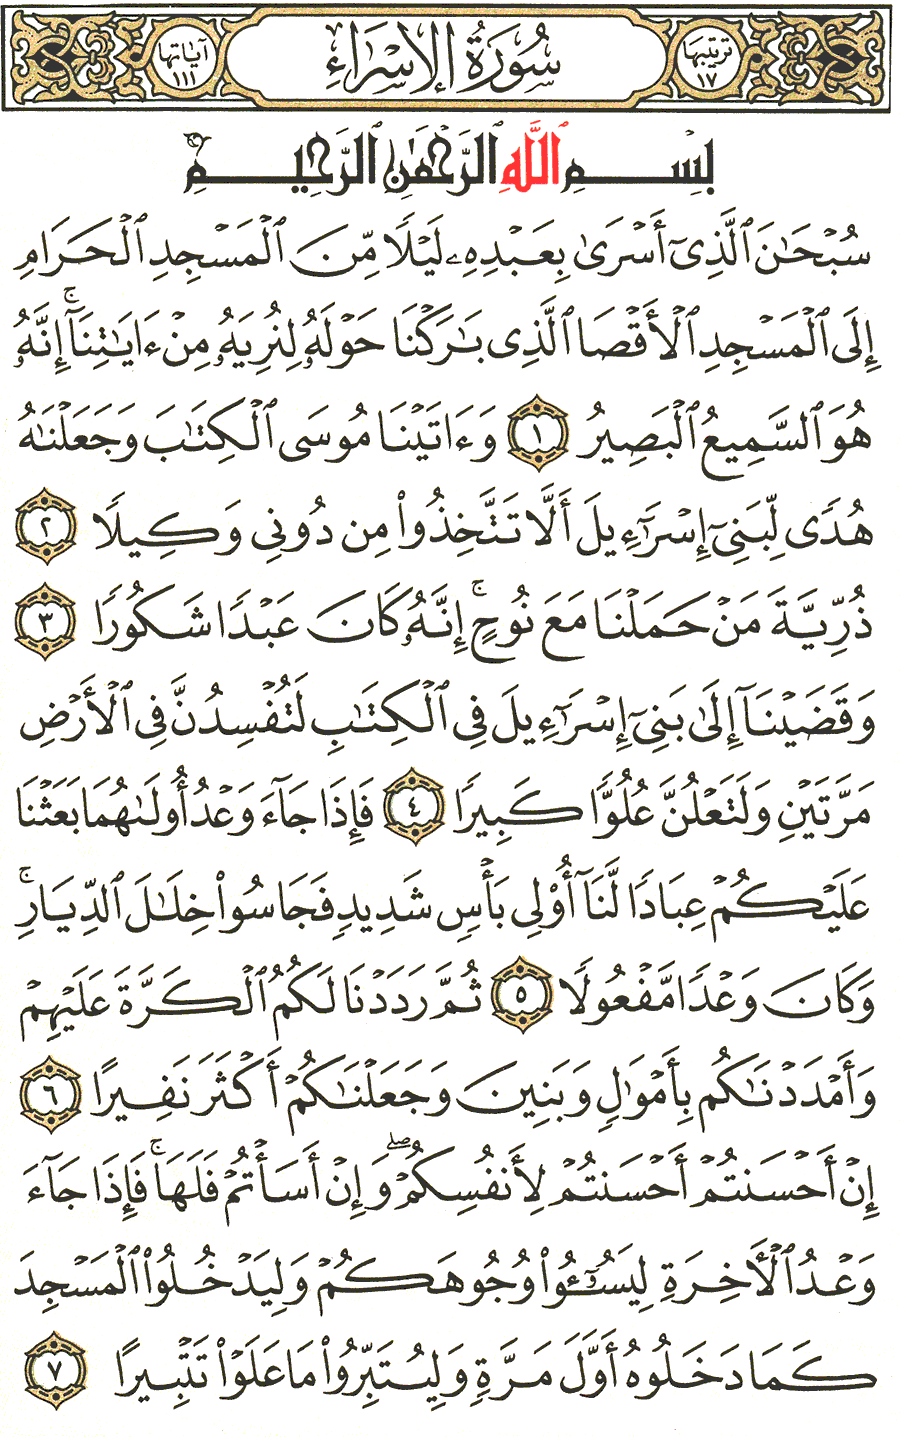 ترتيبها ١٧ سُورَةُ الإِسْرَاءِ آيَاتها ١١١
بِسْمِ ٱللَّهِ ٱلرَّحْمَٰنِ ٱلرَّحِيمِ
سُبْحَٰنَ ٱلَّذِىٓ أَسْرَىٰ بِعَبْدِهِۦ لَيْلًا مِّنَ ٱلْمَسْجِدِ ٱلْحَرَامِ
إِلَى ٱلْمَسْجِدِ ٱلْأَقْصَا ٱلَّذِى بَٰرَكْنَا حَوْلَهُۥ لِنُرِيَهُۥ مِنْ ءَايَٰتِنَآ ۚ إِنَّهُۥ
هُوَ ٱلسَّمِيعُ ٱلْبَصِيرُ ١ وَءَاتَيْنَا مُوسَى ٱلْكِتَٰبَ وَجَعَلْنَٰهُ
هُدًى لِّبَنِىٓ إِسْرَٰٓءِيلَ أَلَّا تَتَّخِذُوا۟ مِن دُونِى وَكِيلًا ٢
ذُرِّيَّةَ مَنْ حَمَلْنَا مَعَ نُوحٍ ۚ إِنَّهُۥ كَانَ عَبْدًا شَكُورًا ٣
وَقَضَيْنَآ إِلَىٰ بَنِىٓ إِسْرَٰٓءِيلَ فِى ٱلْكِتَٰبِ لَتُفْسِدُنَّ فِى ٱلْأَرْضِ
مَرَّتَيْنِ وَلَتَعْلُنَّ عُلُوًّا كَبِيرًا ٤ فَإِذَا جَآءَ وَعْدُ أُولَىٰهُمَا بَعَثْنَا
عَلَيْكُمْ عِبَادًا لَّنَآ أُو۟لِى بَأْسٍ شَدِيدٍ فَجَاسُوا۟ خِلَٰلَ ٱلدِّيَارِ ۚ
وَكَانَ وَعْدًا مَّفْعُولًا ٥ ثُمَّ رَدَدْنَا لَكُمُ ٱلْكَرَّةَ عَلَيْهِمْ
وَأَمْدَدْنَٰكُم بِأَمْوَٰلٍ وَبَنِينَ وَجَعَلْنَٰكُمْ أَكْثَرَ نَفِيرًا ٦
إِنْ أَحْسَنتُمْ أَحْسَنتُمْ لِأَنفُسِكُمْ ۖ وَإِنْ أَسَأْتُمْ فَلَهَا ۚ فَإِذَا جَآءَ
وَعْدُ ٱلْءَاخِرَةِ لِيَسُۥٓـُٔوا۟ وُجُوهَكُمْ وَلِيَدْخُلُوا۟ ٱلْمَسْجِدَ
كَمَا دَخَلُوهُ أَوَّلَ مَرَّةٍ وَلِيُتَبِّرُوا۟ مَا عَلَوْا۟ تَتْبِيرًا ٧